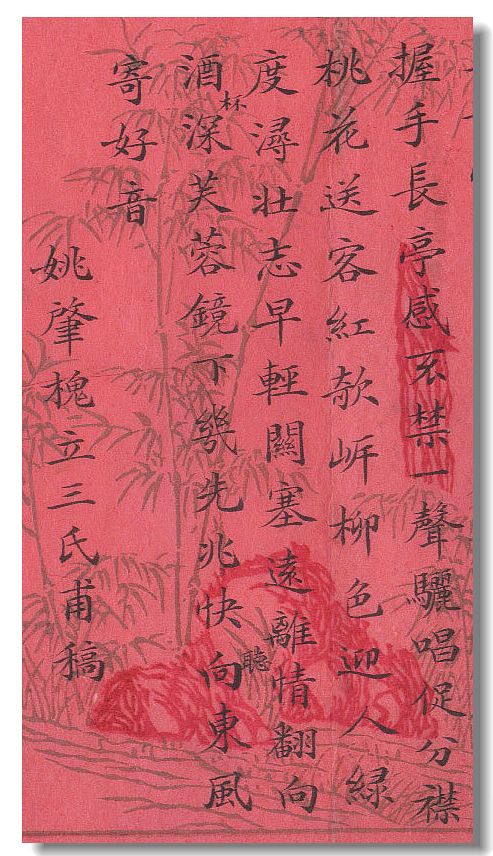 握手長亭感不禁一聲驪唱促分襟
桃花送客紅欹岍柳色迎人綠
度潯壯志早輕關塞遠離情翻向
酒杯深芙蓉鏡下幾先兆快向聽東風
寄好音
姚肇槐立三氏甫稿